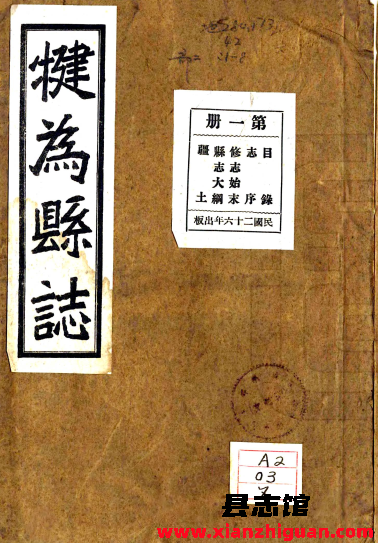 犍為縣誌
第一册
目錄
志序
修志始末
縣志大綱
疆土
民國二十六年出板
A2
03
县志馆
www.xianzhiguan.com